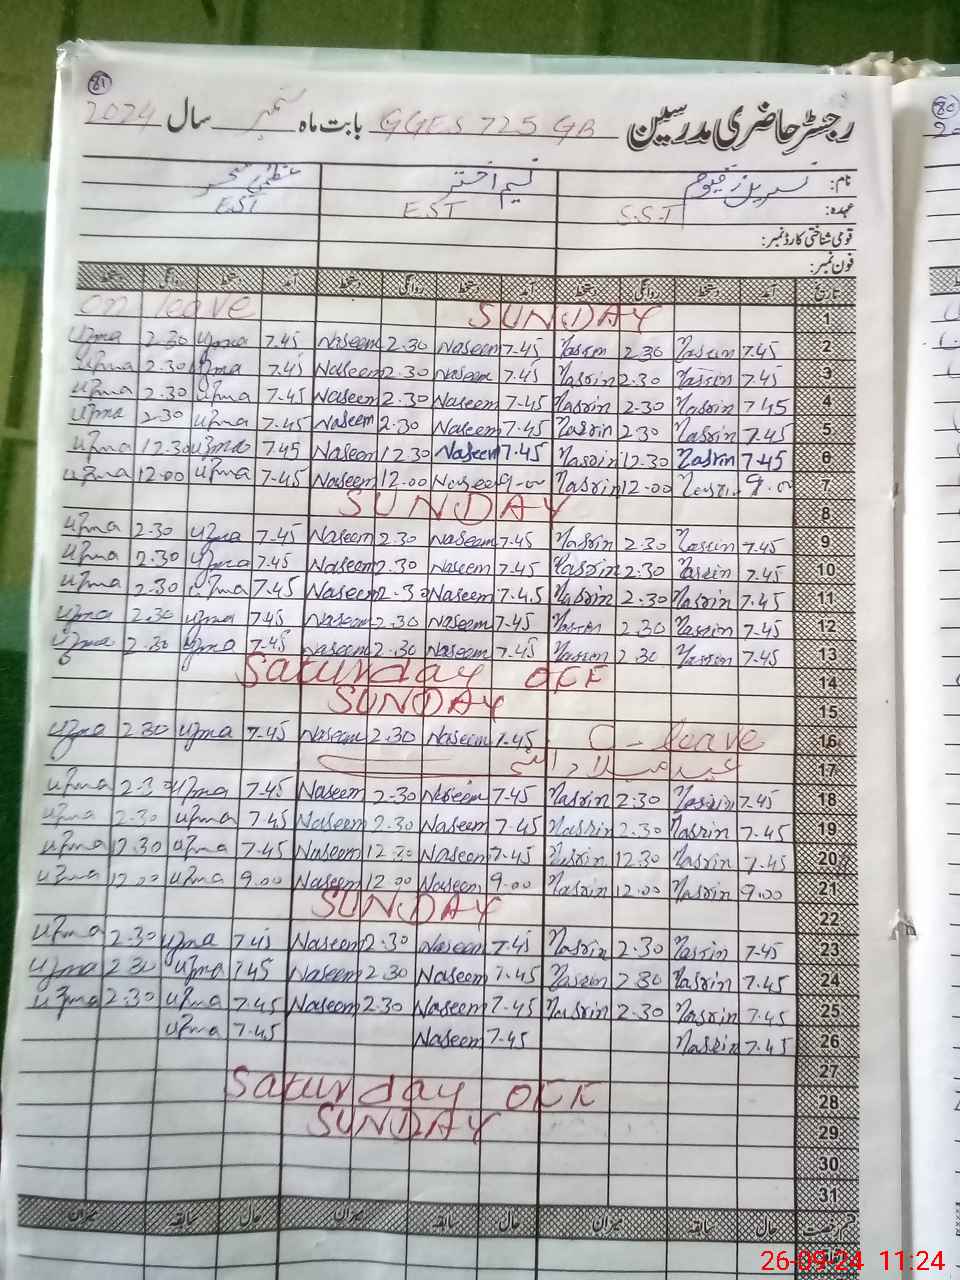 81
رجسٹر حاضری مدرسین GGES 725 GB بابت ماہ ستمبر سال 2024
نام: نسرین قیوم نسیم اختر عظمیٰ
عہدہ: S.S.T EST EST
قومی شناختی کارڈ نمبر:
فون نمبر:
تاریخ آمد دستخط روانگی دستخط آمد دستخط روانگی دستخط آمد دستخط روانگی دستخط
on leave SUNDAY 1
Uzma 2.30 Uzma 7.45 Naseem 2.30 Naseem 7.45 Nasrin 2.30 Nasrin 7.45 2
Uzma 2.30 Uzma 7.45 Naseem 2.30 Naseem 7.45 Nasrin 2.30 Nasrin 7.45 3
Uzma 2.30 Uzma 7.45 Naseem 2.30 Naseem 7.45 Nasrin 2.30 Nasrin 7.45 4
Uzma 2.30 Uzma 7.45 Naseem 2.30 Naseem 7.45 Nasrin 2.30 Nasrin 7.45 5
Uzma 12.30 Uzma 7.45 Naseem 12.30 Naseem 7.45 Nasrin 12.30 Nasrin 7.45 6
Uzma 12.00 Uzma 7.45 Naseem 12.00 Naseem 9.00 Nasrin 12.00 Nasrin 9.00 7
SUNDAY 8
Uzma 2.30 Uzma 7.45 Naseem 2.30 Naseem 7.45 Nasrin 2.30 Nasrin 7.45 9
Uzma 2.30 Uzma 7.45 Naseem 2.30 Naseem 7.45 Nasrin 2.30 Nasrin 7.45 10
Uzma 2.30 Uzma 7.45 Naseem 2.30 Naseem 7.45 Nasrin 2.30 Nasrin 7.45 11
Uzma 2.30 Uzma 7.45 Naseem 2.30 Naseem 7.45 Nasrin 2.30 Nasrin 7.45 12
Uzma 2.30 Uzma 7.45 Naseem 2.30 Naseem 7.45 Nasrin 2.30 Nasrin 7.45 13
Saturday OFF 14
SUNDAY 15
Uzma 2.30 Uzma 7.45 Naseem 2.30 Naseem 7.45 C-leave 16
عید میلاد النبی 17
Uzma 2.30 Uzma 7.45 Naseem 2.30 Naseem 7.45 Nasrin 2.30 Nasrin 7.45 18
Uzma 2.30 Uzma 7.45 Naseem 2.30 Naseem 7.45 Nasrin 2.30 Nasrin 7.45 19
Uzma 12.30 Uzma 7.45 Naseem 12.30 Naseem 7.45 Nasrin 12.30 Nasrin 7.45 20
Uzma 12.00 Uzma 9.00 Naseem 12.00 Naseem 9.00 Nasrin 12.00 Nasrin 9.00 21
SUNDAY 22
Uzma 2.30 Uzma 7.45 Naseem 2.30 Naseem 7.45 Nasrin 2.30 Nasrin 7.45 23
Uzma 2.30 Uzma 7.45 Naseem 2.30 Naseem 7.45 Nasrin 2.30 Nasrin 7.45 24
Uzma 2.30 Uzma 7.45 Naseem 2.30 Naseem 7.45 Nasrin 2.30 Nasrin 7.45 25
Uzma 7.45 Naseem 7.45 Nasrin 7.45 26
27
Saturday OFF 28
SUNDAY 29
30
31
قسم رخصت حال سابقہ میزان حال سابقہ میزان حال سابقہ میزان
26-09-24 11:24
80